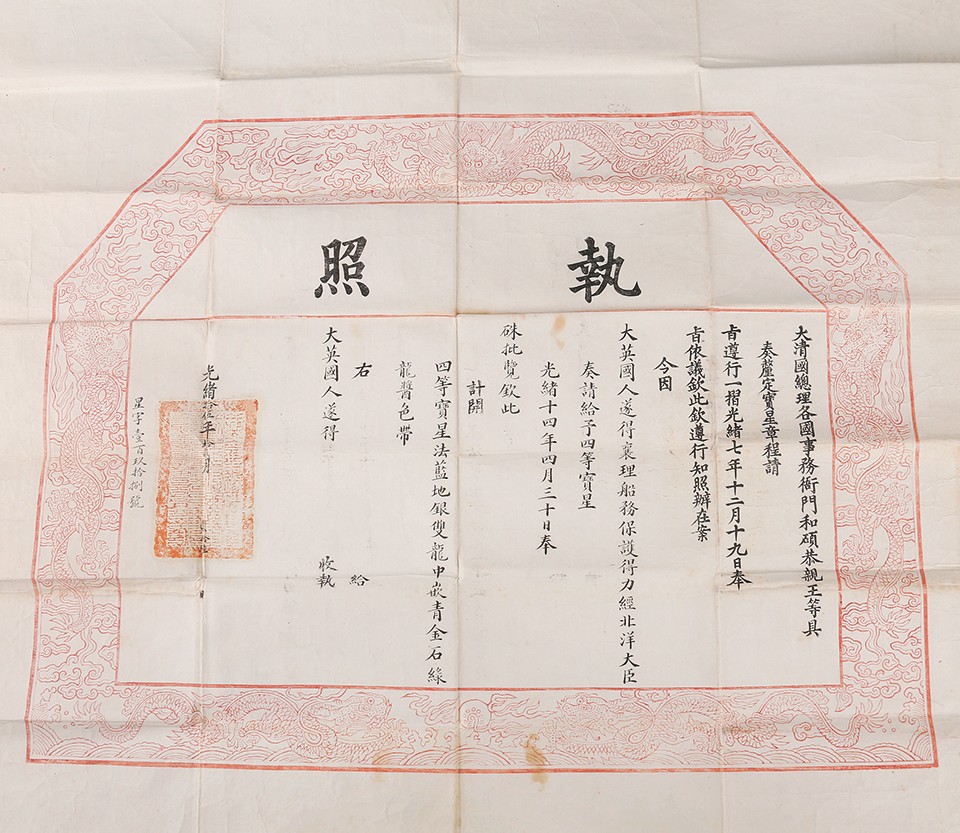 執照
大清國總理各國事務衙門和碩恭親王等具
奏釐定寶星章程請
旨遵行一摺光緒七年十二月十九日奉
旨依議欽此欽遵行知照辦在案
今因
大英國人遂得襄理船務保護得力經北洋大臣
奏請給予四等寶星
光緒十四年四月三十日奉
硃批覽欽此
計開
四等寶星法藍地銀雙龍中嵌青金石綠
龍醬色帶
右 給
大英國人遂得 收執
光緒 年 月 日
星字壹百玖拾捌號